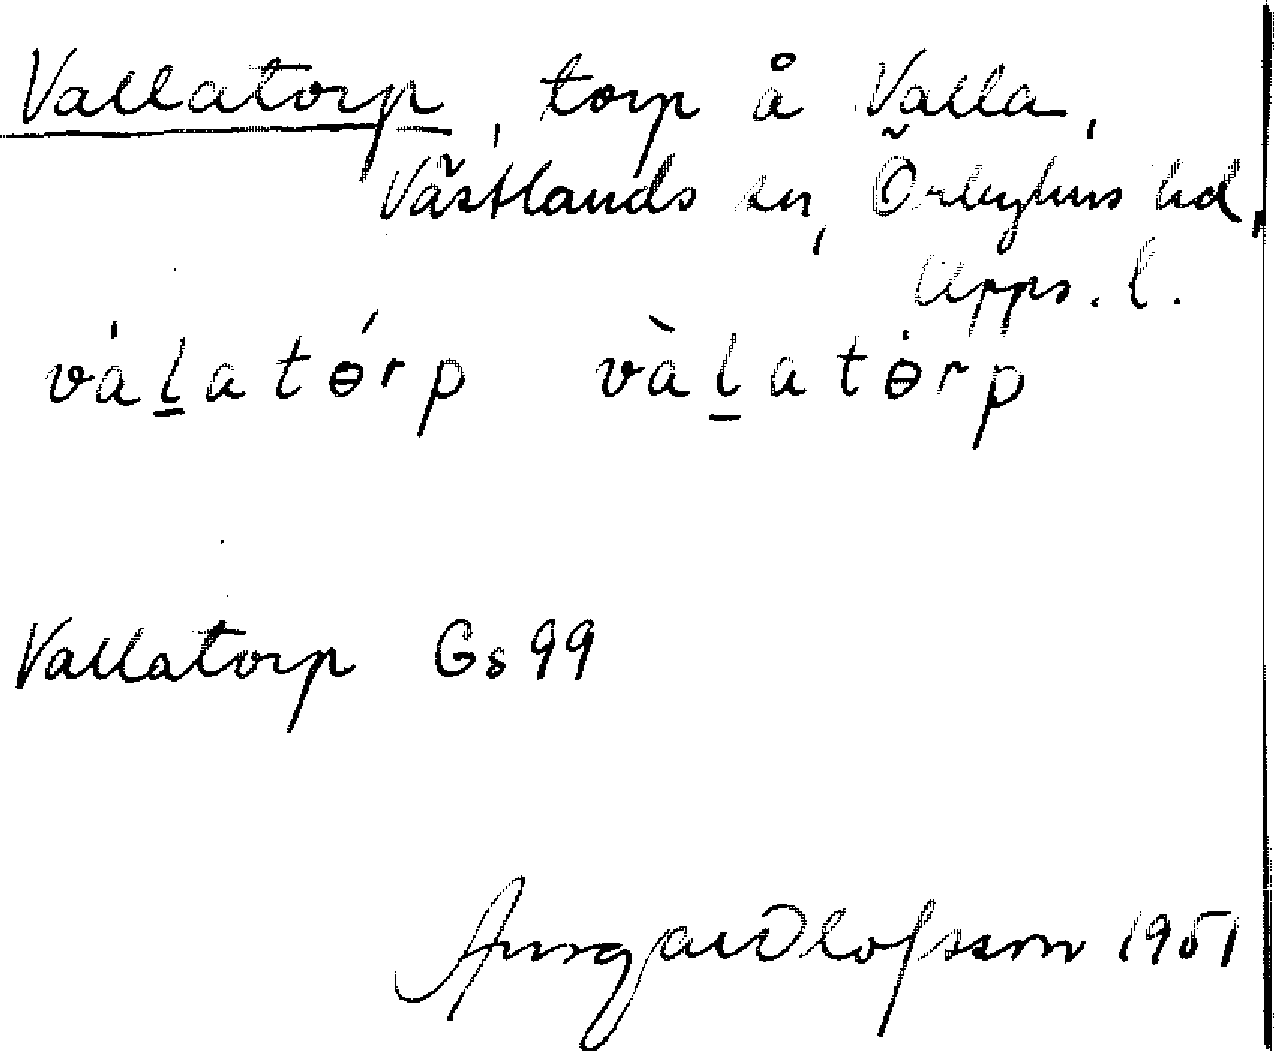 Vallatorp, torp å Valla,
Västlands sn, Örbyhus hd,
Upps. l.
vàl̲atɵ́rp vàl̲atɵ̀rp
Vallatorp Gs 99
Ansgar Olofsson 1951